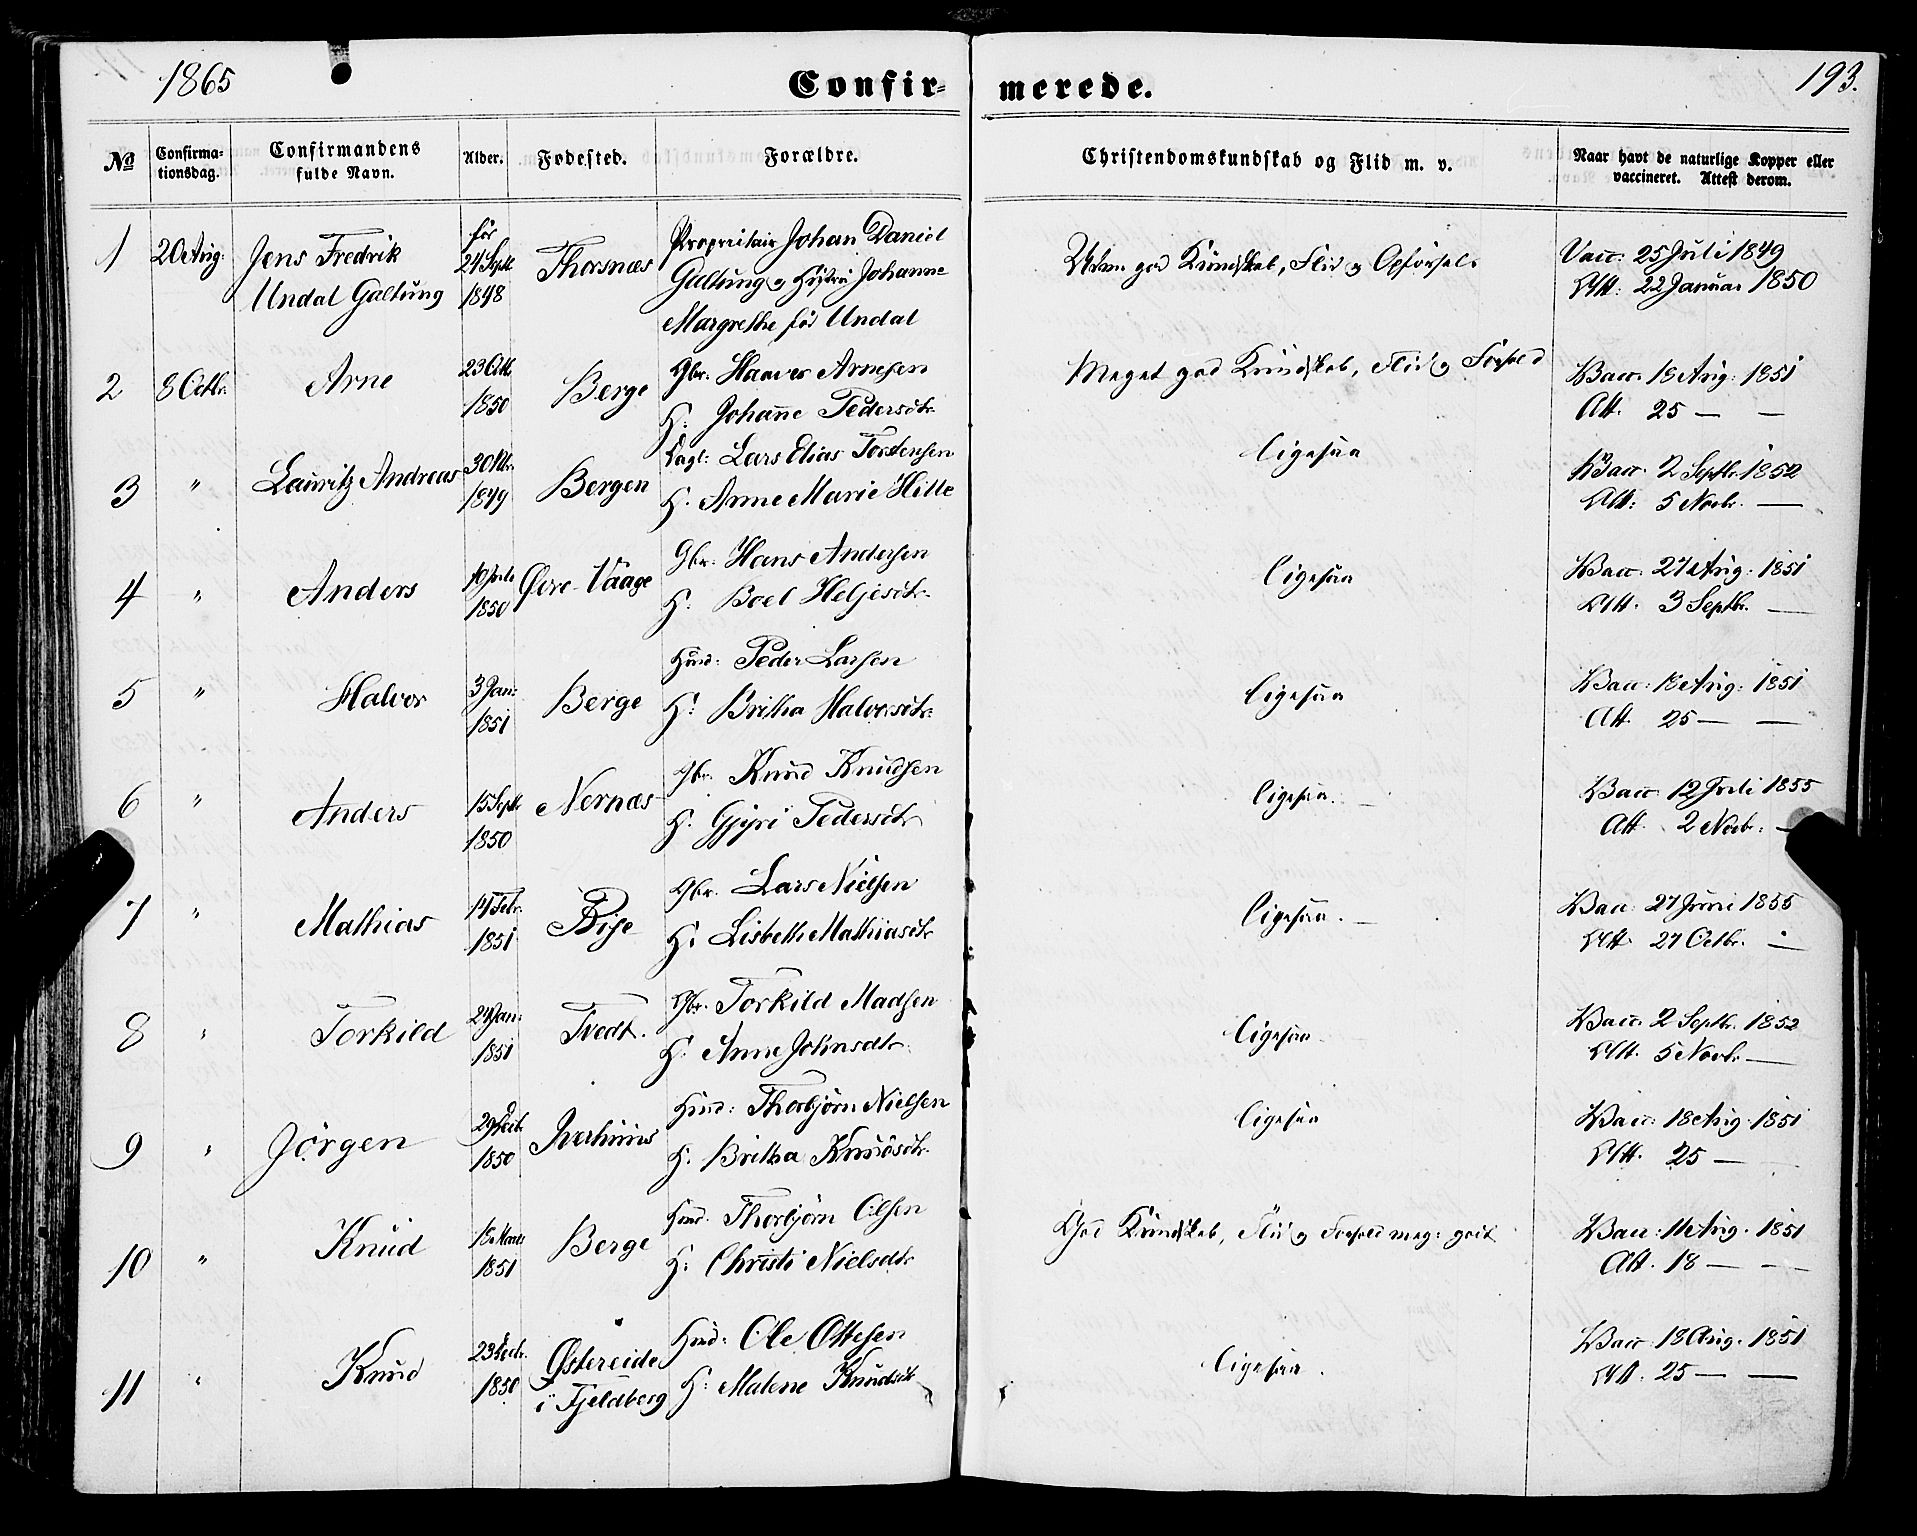 1865
Confirmerede.
193.
No
Confirmationsdag.
Confirmandens fulde Navn.
Alder.
Fødested.
Forældre.
Christendomskundskab og Flid m. v.
Naar havt de naturlige Kopper eller vaccineret. Attest derom.
1 20 Aug: Jens Fredrik Undal Galtung før 24 Sept 1848 Thorsnæs Proprietair Johan Daniel Galtung og Hustru Johanne Margrethe før Undal god Kundskab, Flid og Opførsel. Vacc: 25 Juli 1849 Att: 22 Januar 1850
2 8 Octbr. Arne 23 Octb 1850 Berge Gbr. Haaver Arnesen H. Johanne Pedersdtr. Meget god Kundskab, Flid og Forhold Vacc. 18 Aug: 1851 Att. 25 — —
3 " Lauritz Andreas 30 1849 Bergen Dagl: Lars Elias Torstensen H. Anne Marie Hille Ligesaa Vacc. 2 Septbr. 1852 Att: 5 Novbr. —
4 " Anders 1850 Øvre Vaage Gbr. Hans Andersen H. Boel Heljesdtr. Ligesaa Vacc. 27 Aug. 1851 Att. 3 Septbr. —
5 " Halvor 3 Jan: 1851 Berge Huusd: Peder Larsen H. Britha Halvorsdtr. Ligesaa Vacc: 18 Aug: 1851 Att. 25 — —
6 " Anders 15 Septbr 1850 Nernæs Gbr. Knud Knudsen H. Gjyri Pedersdtr Ligesaa. — Vacc. 12 Juli 1855 Att. 2 Novbr. —
7 " Mathias 14 Febr. 1851 Bise Gbr. Lars Nielsen H. Lisbeth Mathiasdtr Ligesaa. — Vacc. 27 Juni 1855 Att. 27 Octbr. —
8 " Torkild 24 Jan: 1851 Tvedt. Gbr. Torkild Madsen H. Anne Johnsdtr. Ligesaa Vacc. 2 Septbr. 1852 Att. 5 Novbr. —
9 " Jørgen 29 1850 Huusd: Thorbjørn Nielsen H. Britha Knudsdtr. Ligesaa Vacc: 18 Aug. 1851 Att. 25 —
10 " Knud 18 Marts 1851 Berge Huusd. Thorbjørn Olsen H. Christi Nielsdtr God Kundskab, Flid og Forhold meg: godt Vacc: 11 Aug. 1851 Att. 18 — —
11 " Knud 23 1850 Østereide i Fjeldberg Huusd: Ole Ottesen H. Malene Knudsdtr Ligesaa. Vacc: 18 Aug. 1851 Att. 25 — —